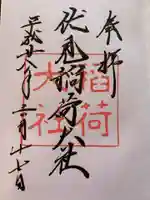 奉拝
伏見稲荷大社
平成廿八年二月十七日
稲荷
大社